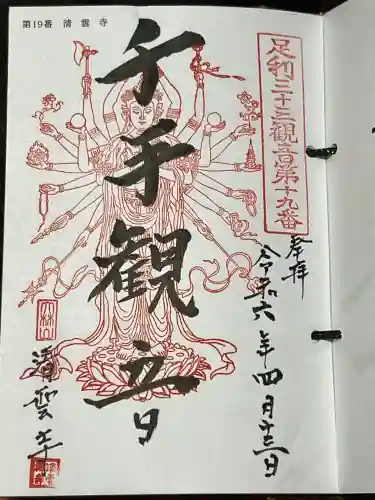 第19番 清雲寺
足利三十三観音第十九番
奉拝
令和六年四月十三日
千手観音
清雲寺